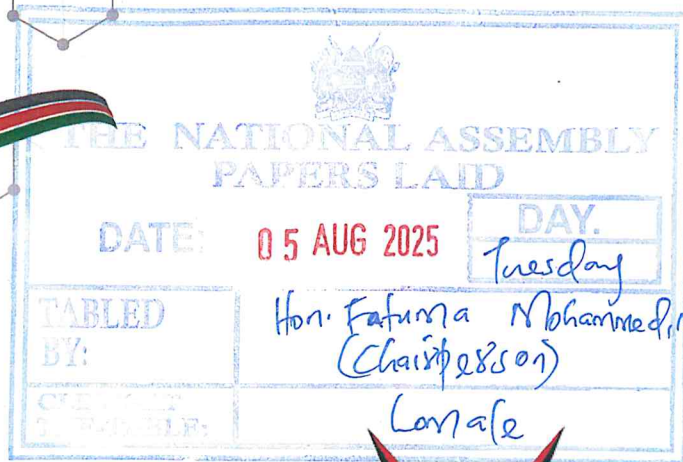 THE NATIONAL ASSEMBLY
PAPERS LAID
DATE: 05 AUG 2025 DAY.
Tuesday
TABLED
BY: Hon. Fatuma Mohammed,
(Chairperson)